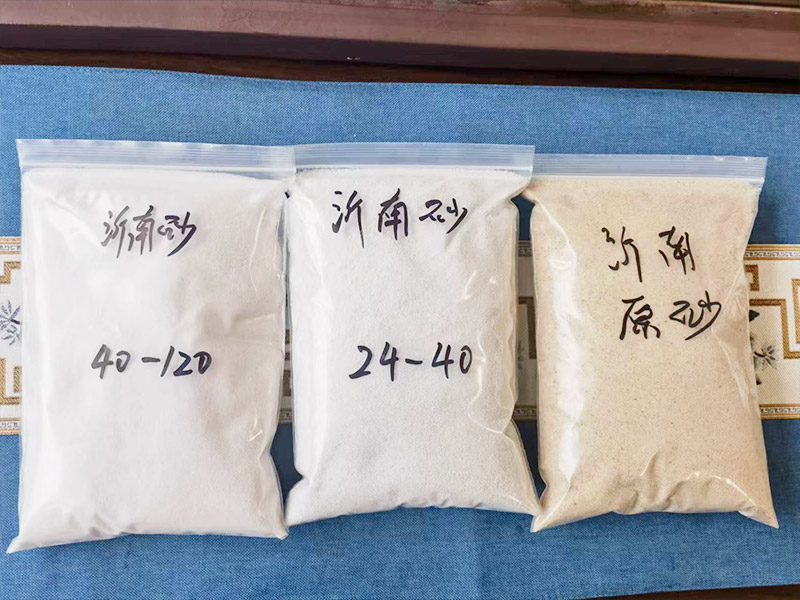 沂南砂
40-120
沂南砂
24-40
沂南
原砂